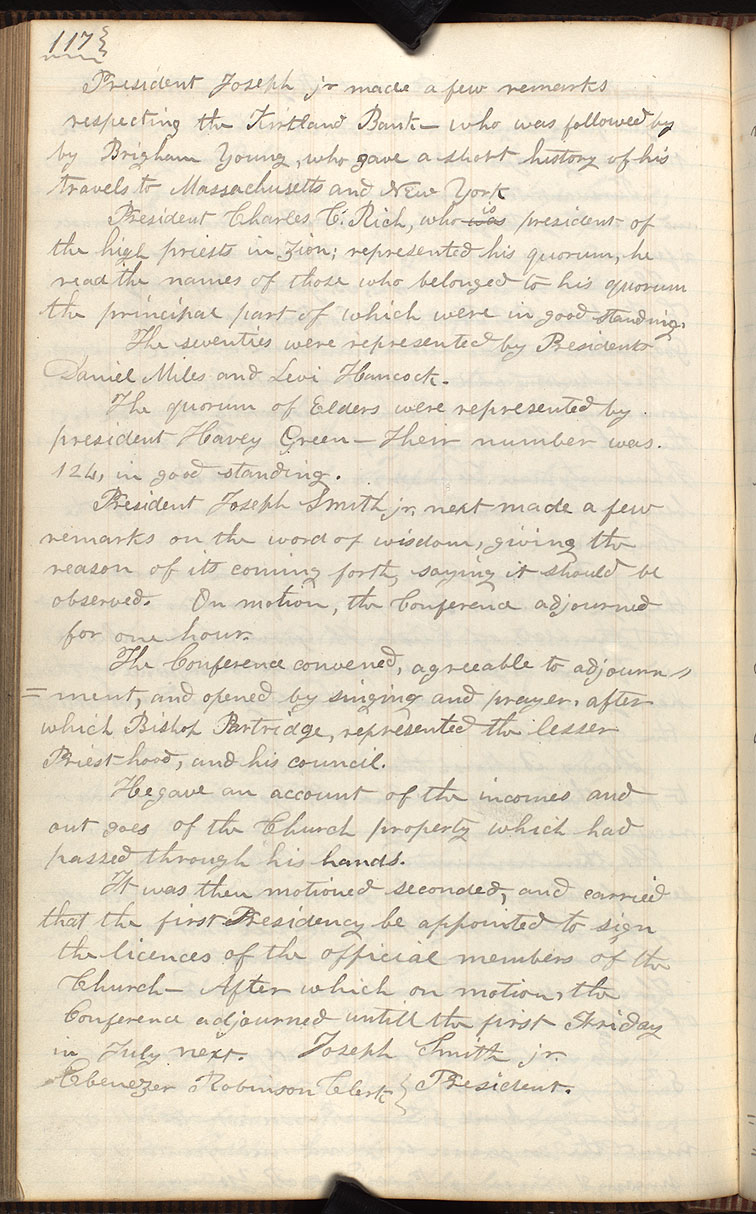 117
President Joseph jr made a few remarks
respecting the Kirtland Bank— who was followed by
by Brigham Young, who gave a short history of his
travels to Massachusetts and New York
President Charles C. Rich, who was is president of
the high priests in Zion; represented his quorum, he
read the names of those who belonged to his quorum
the principal part of which were in good standing.
The seventies were represented by Presidents
Daniel Miles and Levi Hancock.
The quorum of Elders were represented by
president Havey Green— Their number was.
124, in good standing.
President Joseph Smith jr, next made a few
remarks on the word of wisdom, giving the
reason of its coming forth, saying it should be
observed. On motion, the Conference adjourned
for one hour.
The Conference convened, agreeable to adjourn=
=ment, and opened by singing and prayer, after
which Bishop Partridge, represented the lesser
Priest-hood, and his council.
He gave an account of the incomes and
out goes of the Church property which had
passed through his hands.
It was then motioned seconded, and carried
that the first Presidency be appointed to sign
the licences of the official members of the
Church— After which on motion, the
Conference adjourned untill the first Friday
in July next. Joseph Smith jr.
Ebenezer Robinson Clerk } President.